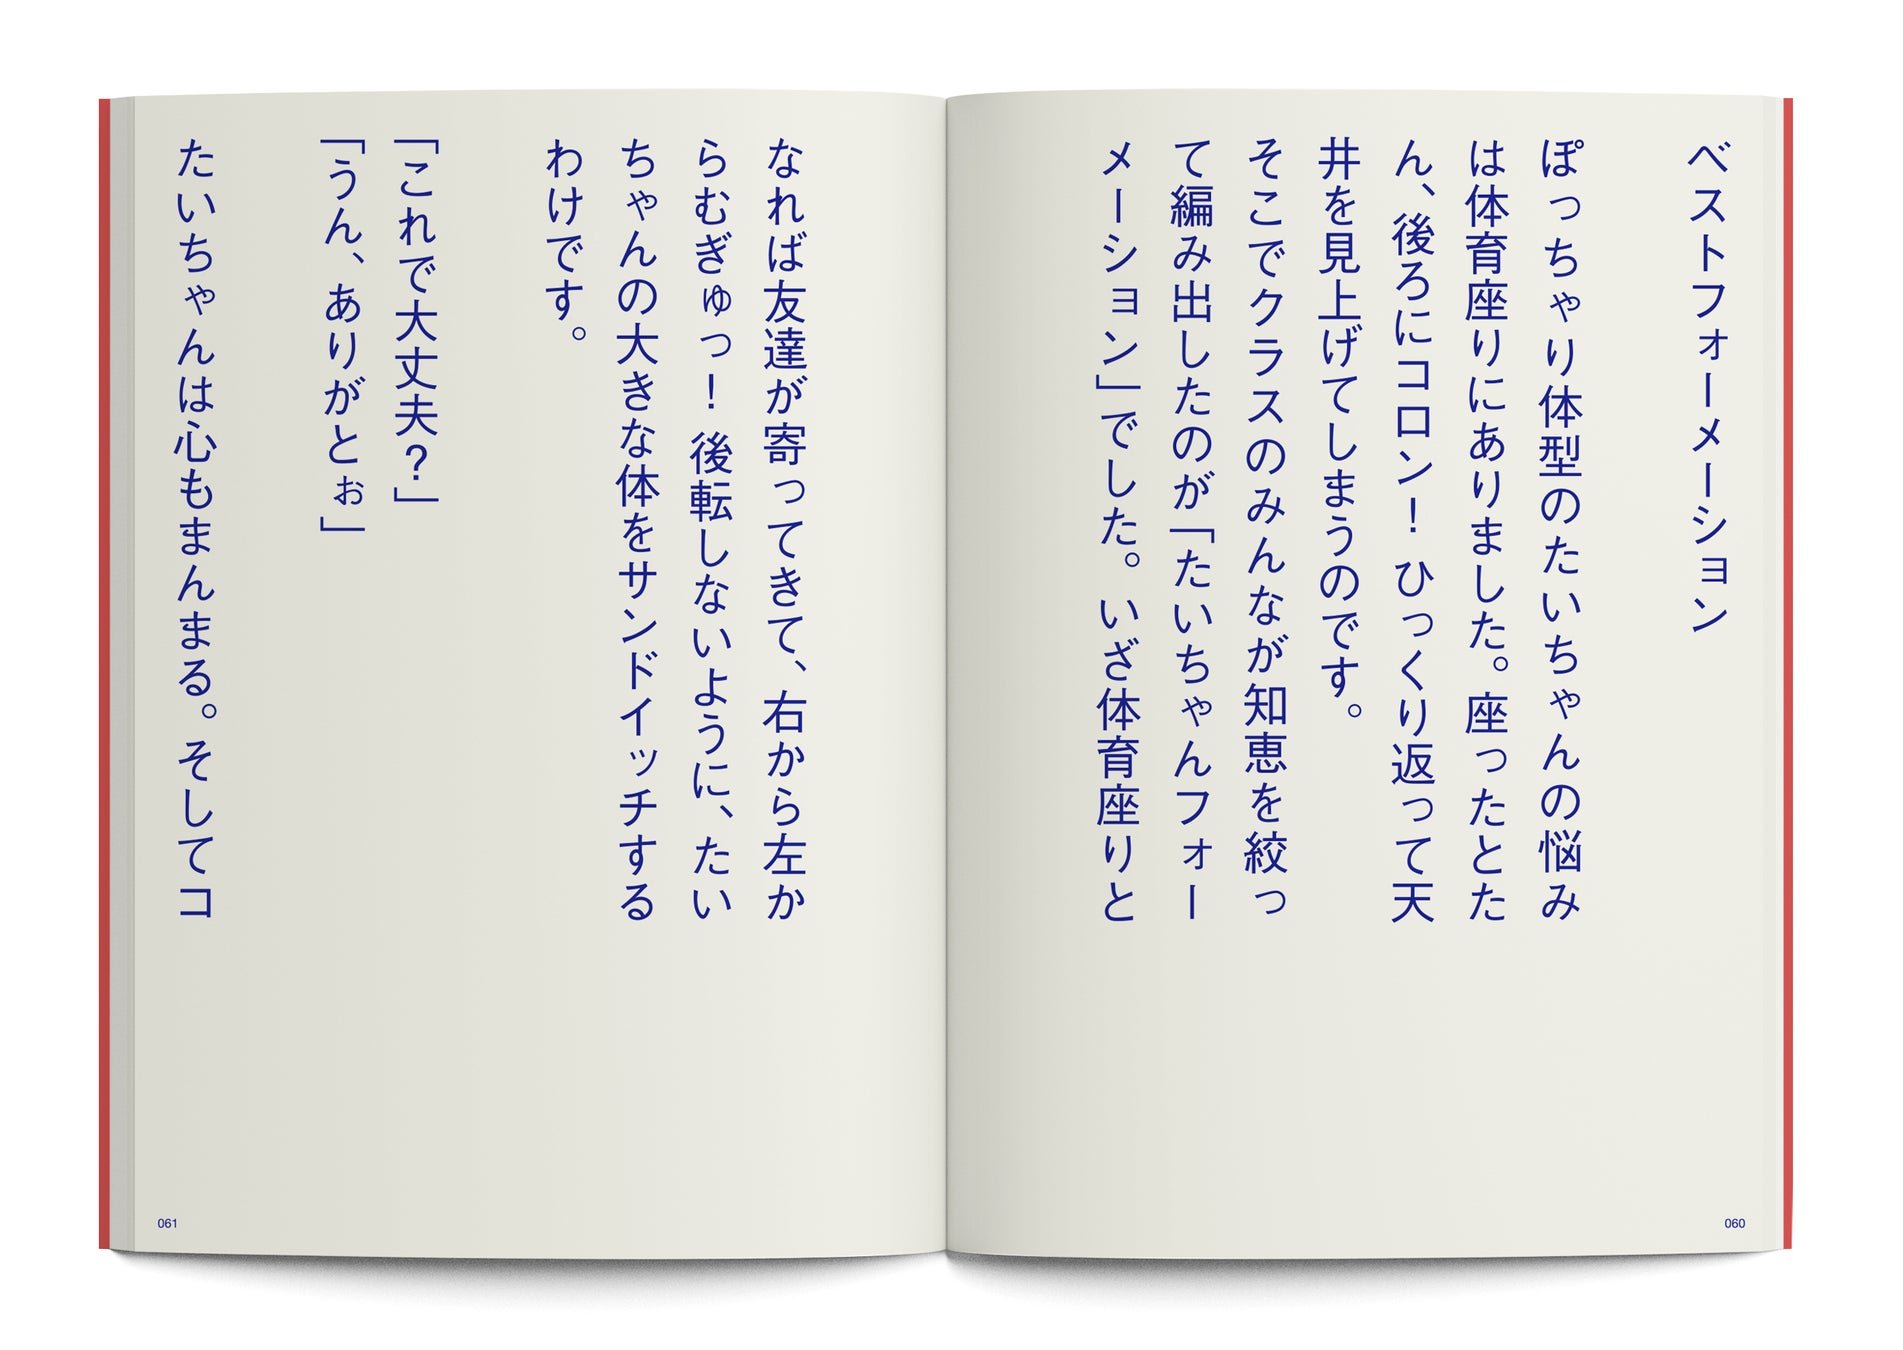 ベストフォーメーション
ぽっちゃり体型のたいちゃんの悩み
は体育座りにありました。座ったとた
ん、後ろにコロン！ひっくり返って天
井を見上げてしまうのです。
そこでクラスのみんなが知恵を絞っ
て編み出したのが「たいちゃんフォー
メーション」でした。いざ体育座りと
060
なれば友達が寄ってきて、右から左か
らむぎゅっ！後転しないように、たい
ちゃんの大きな体をサンドイッチする
わけです。
「これで大丈夫？」
「うん、ありがとぉ」
たいちゃんは心もまんまる。そしてコ
061